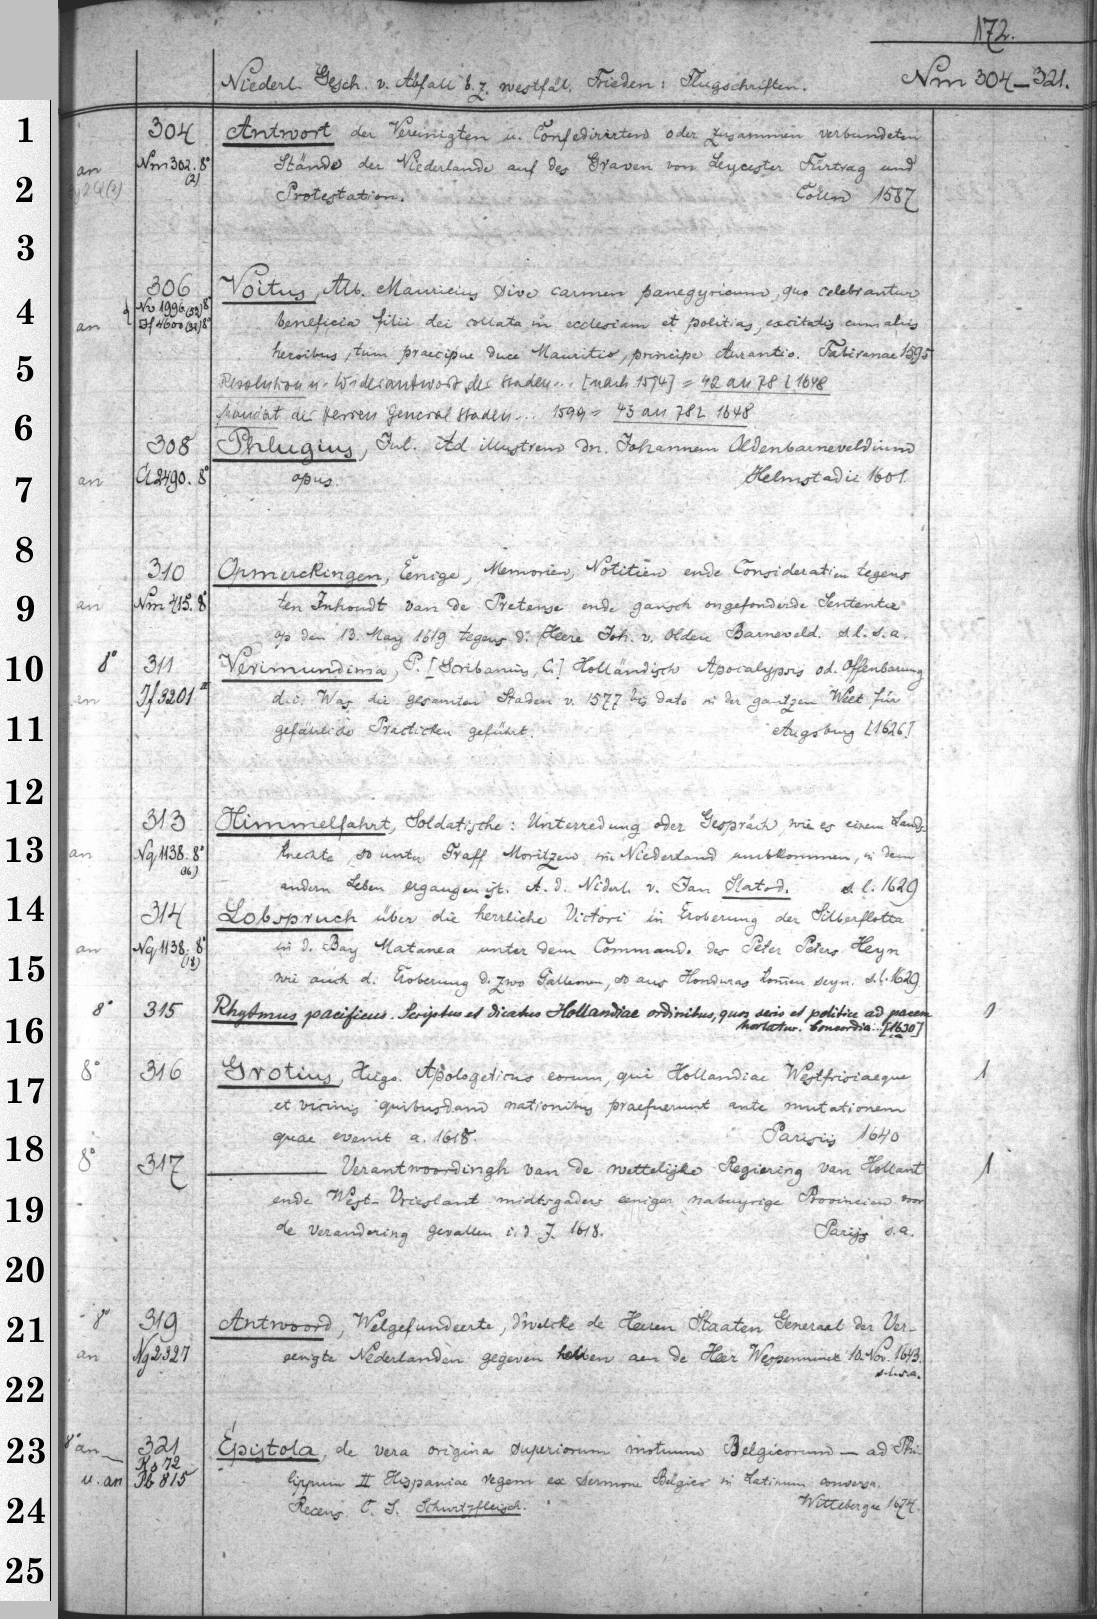 172.
Niederl. Gesch. v. Abfall b. z. westfäl. Frieden: Flugschriften. Nm 304–321.
1 304 Antwort der Vereinigten u. Confedirirten oder zusammen verbundeten
an Nm 302. 8° Stände der Niederlande auf des Graven von Leycester Fürtrag und
2 (2) Protestation. Cölln 1587
3
306 Voitus, Alb. Mauricius sive carmen panegyricum, quo celebrantur
4 an No 1996 (32) 8° If 4600 (32) 8° beneficia filii dei collata in ecclesiam et politias, excitatis cum aliis
heroibus, tum praecipue duce Mauritio, principe Aurantio. 1595
5 Resolution u. Widerantwort der Staden... [nach 1574] = 42 an 78 L 1648
Mandat der Herren General Staden... 1599 = 43 an 78 L 1648
6 308 Phlugius, Jul. Ad illustrem dn. Johannem Oldenbarneveldium
7 an Cl 2490. 8° opus. Helmstadii 1601
8
310 Opmerckingen, Eenige, Memorien, Notitien ende Consideratien tegens
9 an Nm 415. 8° ten Inhoudt van de Pretense ende gansch ongefondeerde Sententie
op den 13. May 1619 tegens d. Heere Joh. v. Olden Barneveld. s. l. s. a.
10 8° 311 Verimundima, P. [Scribanius, C.] Holländisch Apocalypsis od. Offenbarung
If 3201 d. i. Was die gesamten Staden v. 1577 bis dato in der gantzen Welt für
11 gefährliche Practicken geführt. Augsburg [1626]
12
313 Himmelfahrt, Soldatische: Unterredung oder Gespräch, wie es einem Lands-
13 an Nq 1138. 8° knechte, so unter Graff Moritzen im Niederland umbkommen, in dem
(16) andern Leben ergangen ist. A. d. Niderl. v. Jan Slatod. s. l. 1629
14 314 Lobspruch über die herrliche Victori in Eroberung der Silberflotta
an Nq 1138. 8° in d. Bay Matanca unter dem Commando des Peter Peters Heyn
15 (18) wie auch d. Eroberung d. zwo Galleonen, so aus Honduras kom̄en seyn. s. l. 1629
8° 315 Rhytmus pacificus. Scriptus et dicatus Hollandiae ordinibus, quos serio et politice ad pacem 1
16 hortatur. Concordia... [1630]
8° 316 Grotius, Hugo. Apologeticus eorum, qui Hollandiae Westfrisiaeque 1
17 et vicinis quibusdam nationibus praefuerunt ante mutationem
quae evenit a. 1618. Parisiis 1640
18 8° 317 Verantwoordingh van de wettelijke Regiering van Hollant 1
19 ende West-Vrieslant midtsgaders eeniger nabuyrige Provincien voor
de verandering gevallen i. d. J. 1618. Parijs s. a.
20
8° 319 Antwoord, Welgefundeerte, d'welcke de Heeren Staaten Generael der Ver-
21 an Nq 2327 eenigte Nederlanden gegeven hebben aen de Heer 10. Nov. 1643.
s. l. s. a.
22
23 8° an 321 Epistola, de vera origine superiorum motuum Belgicorum — ad Phi-
u. an Ko 72 Pb 815 lippum II Hispaniae regem ex sermone Belgico in Latinum conversa.
24 Recens. C. S. Schurtzfleisch. Wittebergae 1674.
25